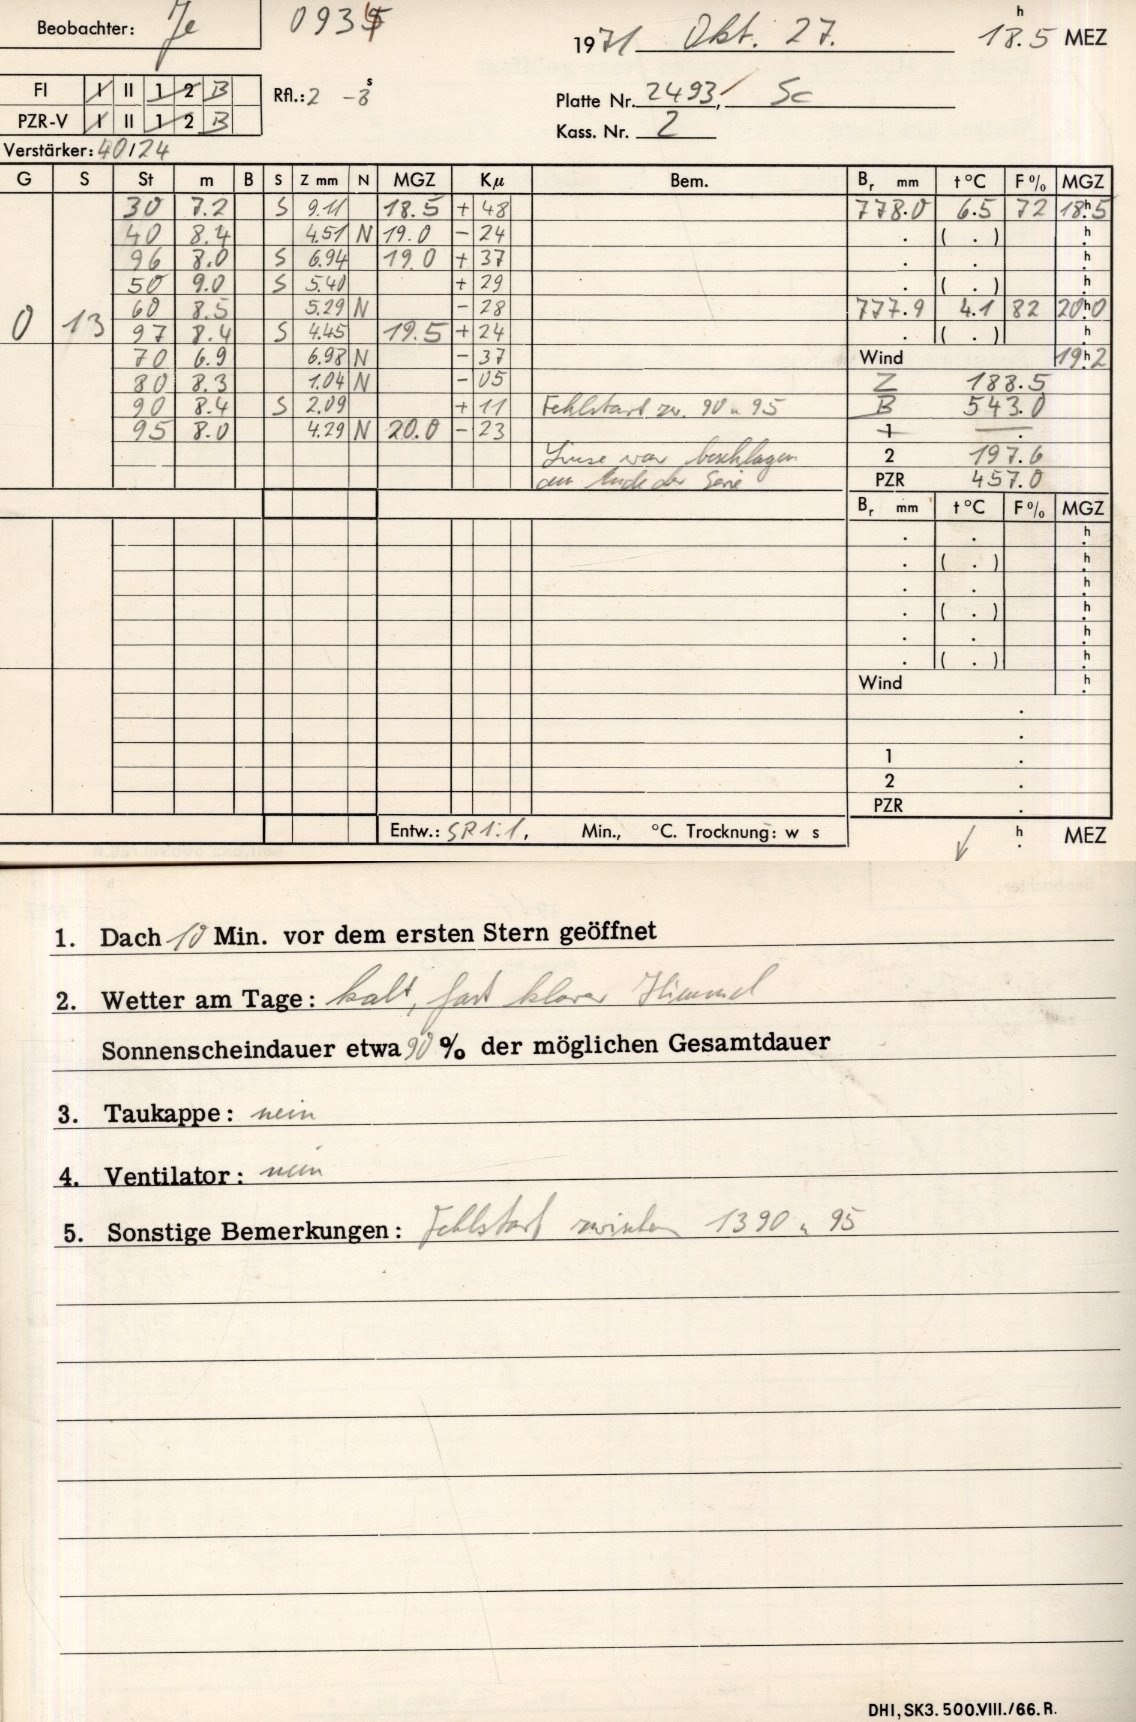 Beobachter: Je 0935
1971 Okt. 27. 18.5 h MEZ
FI I II 1 2 B
Rfl.: 2 -8 s
Platte Nr. 2493, Sc
PZR-V I II 1 2 B
Kass. Nr. 2
Verstärker: 40/24
G S St m B S Z mm N MGZ Kμ Bem. Br mm t °C F % MGZ
30 7.2 S 9.11 18.5 + 48 778.0 6.5 72 18.5 h
40 8.4 4.51 N 19.0 - 24 . ( . ) h
96 8.0 S 6.94 19.0 + 37 . . h
50 9.0 S 5.40 + 29 . ( . ) h
0 13 60 8.5 5.29 N - 28 777.9 4.1 82 20.0 h
97 8.4 S 4.45 19.5 + 24 . ( . ) h
70 6.9 6.98 N - 37 Wind 19.2 h
80 8.3 1.04 N - 05 Z 188.5
90 8.4 S 2.09 + 11 Fehlstart zw. 90 u 95 B 543.0
95 8.0 4.29 N 20.0 - 23 1 — .
Linse war beschlagen 2 197.6
am Ende der Serie PZR 457.0
Br mm t °C F % MGZ
. . h
. ( . ) h
. . h
. ( . ) h
. . h
. ( . ) h
Wind h
.
.
1 .
2 .
PZR .
Entw.: SR 1:1, Min., °C. Trocknung: w s h MEZ
1. Dach 10 Min. vor dem ersten Stern geöffnet
2. Wetter am Tage: kalt, fast klarer Himmel
Sonnenscheindauer etwa 90 % der möglichen Gesamtdauer
3. Taukappe: nein
4. Ventilator: nein
5. Sonstige Bemerkungen: Fehlstart zwischen 1390 u 95
DHI, SK3. 500.VIII./66. R.